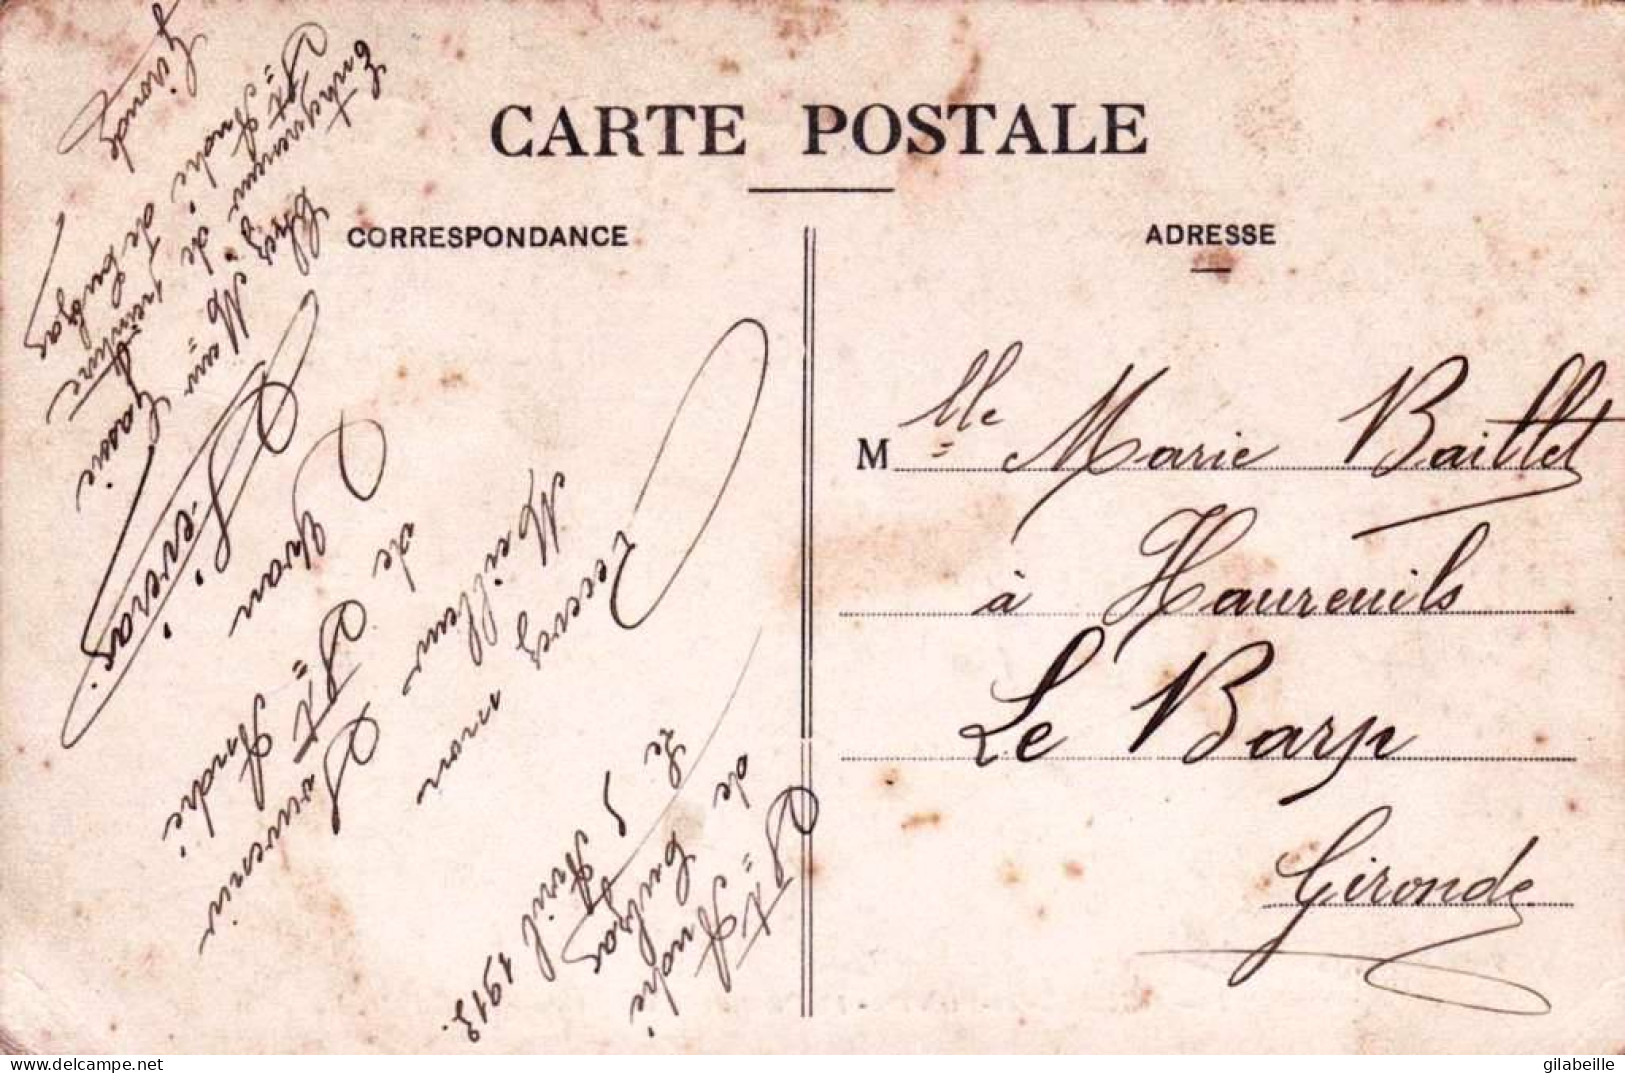 CARTE POSTALE
CORRESPONDANCE
St André
de Cubzac
Le 5 Avril 1913.
Recevez mon
Meilleur Souvenir
de St André
Yvan
P. everas.
Entrepreneur
Chez Mair
St André de
de Cubzac
Gironde
ADRESSE
Mlle Marie Baillet
à Haureuils
Le Barp
Gironde
delcampe.net
gilabeille